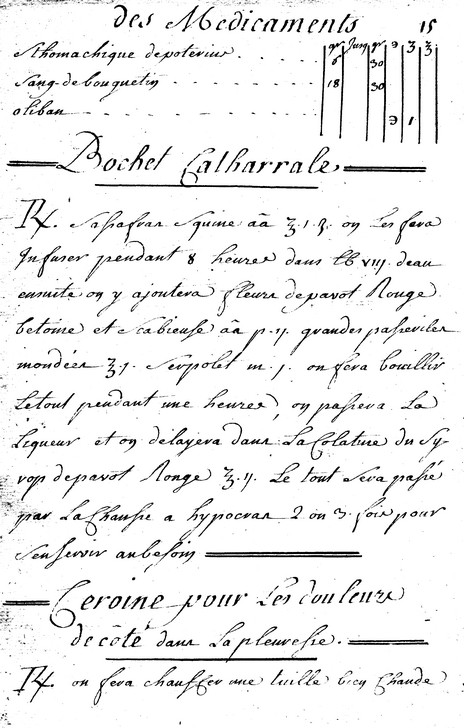 des Medicaments 15
gr jusq gr ℈ ʒ ℥
Sthomachique depoterius . . . . 6 30
Sang de bouquetin . . . . . 18 30
oliban . . . . . ℈ 1
Bochet Catharrale
℞. Sasafras Squine aã ℥.1.ʒ. on Les fera
Infuser pendant 8 heures dans lb viij. deau
ensuite on y ajoutera fleurs depavot Rouge
betoine et Scabieuse aã p.ij. grandes passeriles
mondées ℥.j. Serpolet m.j. on fera bouillir
Letout pendant une heures, on passera La
Liqueur et on delayera dans La Colature du Sy-
rop depavot Rouge ℥.ij. Le tout Sera passé
par La Chausse a hypocras 2 ou 3. fois pour
Senservir aubesoin
Ceroine pour Les douleurs
de côté dans La pleuresie.
℞. on fera chauffer une tuille bien Chaude